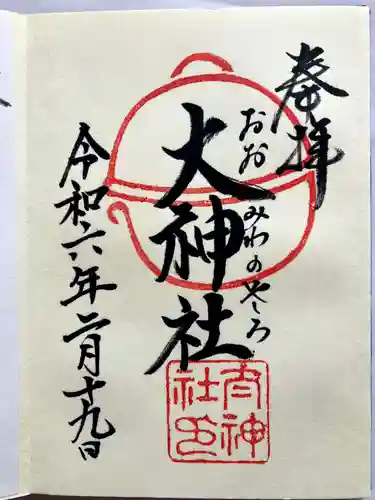 奉拝
おおみわのやしろ
大神社
大神社印
令和六年二月十九日